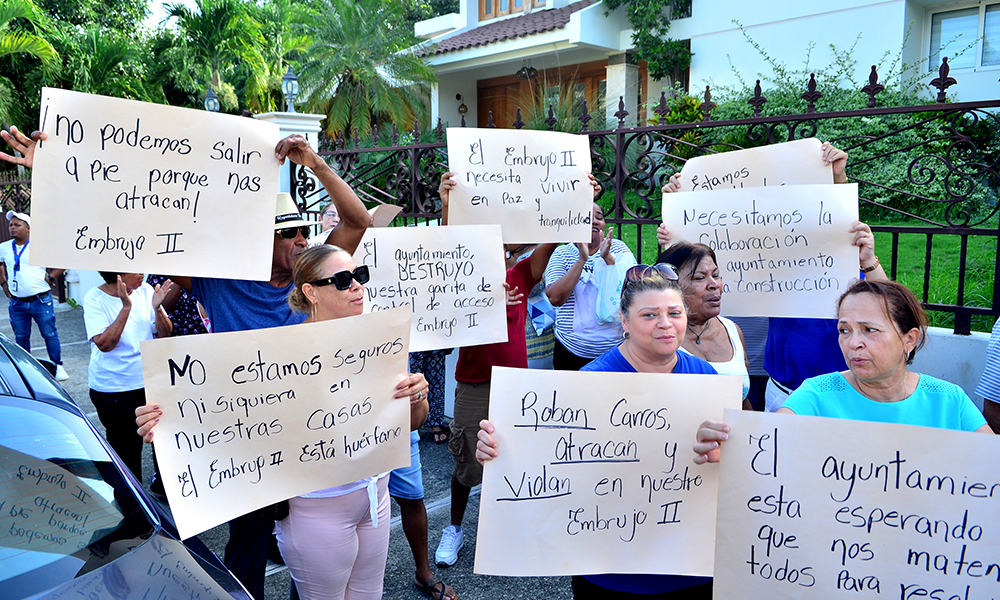 ¡No podemos salir
a pie porque nos
atracan!
Embrujo II
El Embrujo II
necesita vivir
en Paz y
tranquilidad
Estamos
Necesitamos la
Colaboración
ayuntamiento
Construcción
El ayuntamiento,
DESTRUYO
nuestra garita de
control de acceso
Embrujo II
No estamos seguros
Ni siquiera en
nuestras casas
El Embrujo II Está huérfano
Roban Carros,
atracan y
Violan en nuestro
Embrujo II
El ayuntamien
esta esperando
que nos maten
todos para